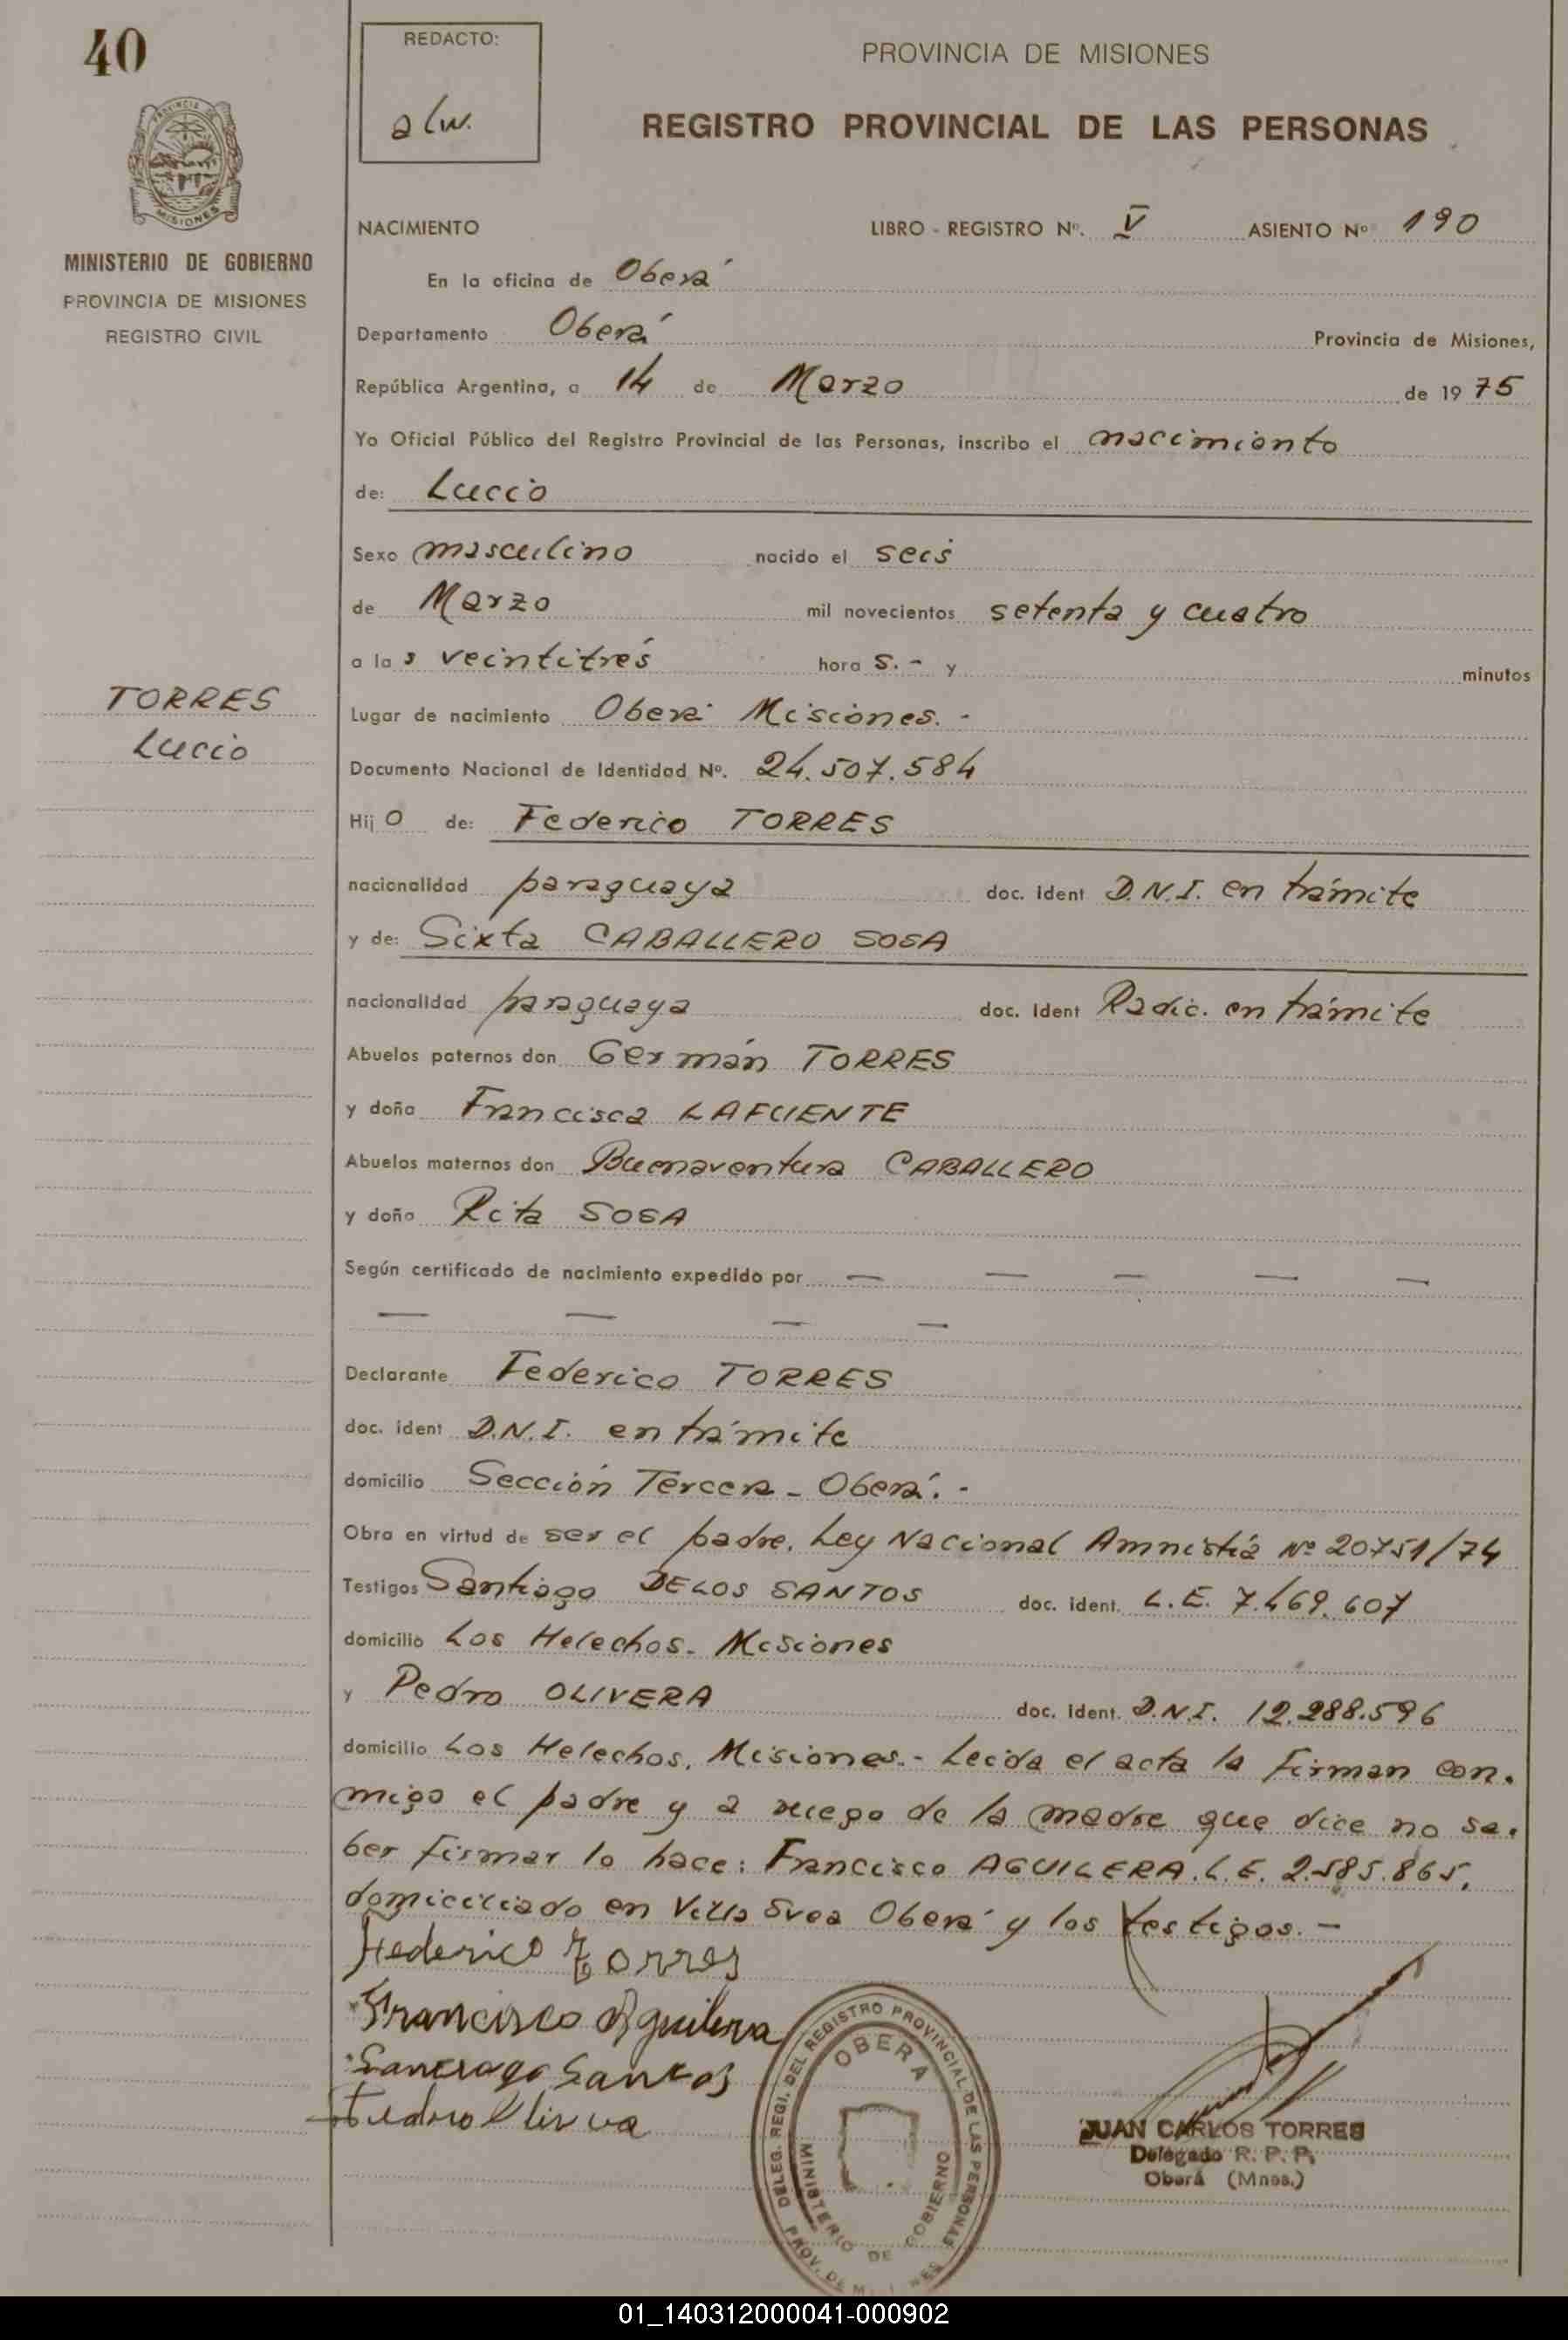 40
REDACTO:
alw.
PROVINCIA DE MISIONES
REGISTRO PROVINCIAL DE LAS PERSONAS
MISIONES
MINISTERIO DE GOBIERNO
PROVINCIA DE MISIONES
REGISTRO CIVIL
NACIMIENTO LIBRO - REGISTRO Nº. V ASIENTO Nº 190
En la oficina de Oberá
Departamento Oberá Provincia de Misiones,
República Argentina, a 14 de Marzo de 1975
Yo Oficial Público del Registro Provincial de las Personas, inscribo el nacimiento
de: Lucio
Sexo masculino nacido el seis
de Marzo mil novecientos setenta y cuatro
a las veintitrés horas.- y minutos
TORRES
Lucio
Lugar de nacimiento Oberá Misiones.-
Documento Nacional de Identidad Nº. 24.507.584
Hijo de: Federico TORRES
nacionalidad paraguaya doc. ident D.N.I. en trámite
y de: Sixta CABALLERO SOSA
nacionalidad paraguaya doc. ident Radic. en trámite
Abuelos paternos don Germán TORRES
y doña Francisca LAFUENTE
Abuelos maternos don Buenaventura CABALLERO
y doña Rita SOSA
Según certificado de nacimiento expedido por — — — — —
— — — —
Declarante Federico TORRES
doc. ident D.N.I. en trámite
domicilio Sección Tercera - Oberá.-
Obra en virtud de ser el padre. Ley Nacional Amnistía Nº 20751/74
Testigos Santiago DE LOS SANTOS doc. ident. L.E. 7.469.607
domicilio Los Helechos. Misiones
y Pedro OLIVERA doc. ident. D.N.I. 12.288.596
domicilio Los Helechos. Misiones.- Leida el acta la firman con-
migo el padre y a ruego de la madre que dice no sa-
ber firmar lo hace: Francisco AGUILERA. L.E. 2.585.865,
domiciliado en Villa Svea Oberá y los testigos.-
Federico Torres
Francisco Aguilera
Santiago Santos
Pedro Olivera
DELEG. REGI. DEL REGISTRO PROVINCIAL DE LAS PERSONAS
OBERA
MINISTERIO DE GOBIERNO
PROV. DE MISIONES
JUAN CARLOS TORRES
Delegado R. P. P.
Oberá (Mnes.)
01_140312000041-000902